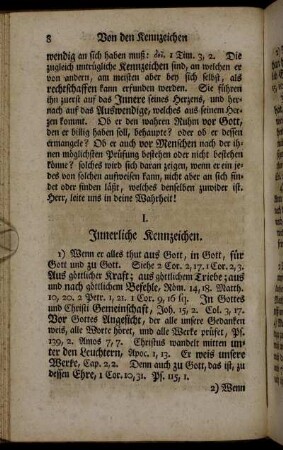 8 Von den Kennzeichen
wendig an sich haben muß: δεῖ. 1 Tim. 3, 2. Die
zugleich untrügliche Kennzeichen sind, an welchen er
von andern, am meisten aber bey sich selbst, als
rechtschaffen kann erfunden werden. Sie führen
ihn zuerst auf das Innere seines Herzens, und her-
nach auf das Auswendige, welches aus seinem Her-
zen kommt. Ob er den wahren Ruhm vor Gott,
den er billig haben soll, behaupte? oder ob er dessen
ermangele? Ob er auch vor Menschen nach der ih-
nen möglichsten Prüfung bestehen oder nicht bestehen
könne? solches wird sich daran zeigen, wenn er ein je-
des von solchen aufweisen kann, nicht aber an sich fin-
det oder finden läßt, welches denselben zuwider ist.
Herr, leite uns in deine Wahrheit!
I.
Innerliche Kennzeichen.
1) Wenn er alles thut aus Gott, in Gott, für
Gott und zu Gott. Siehe 2 Cor. 2, 17. 1 Cor. 2, 3.
Aus göttlicher Kraft; aus göttlichem Triebe; aus
und nach göttlichem Befehle, Röm. 14, 18. Matth.
10, 20. 2 Petr. 1, 21. 1 Cor. 9, 16 sq. In Gottes
und Christi Gemeinschaft, Joh. 15, 2. Col. 3, 17.
Vor Gottes Angesicht, der alle unsre Gedanken
weis, alle Worte höret, und alle Werke prüfet, Ps.
139, 2. Amos 7, 7. Christus wandelt mitten un-
ter den Leuchtern, Apoc. 1, 13. Er weis unsere
Werke, Cap. 2, 2. Denn auch zu Gott, das ist, zu
dessen Ehre, 1 Cor. 10, 31. Ps. 115, 1.
2) Wenn